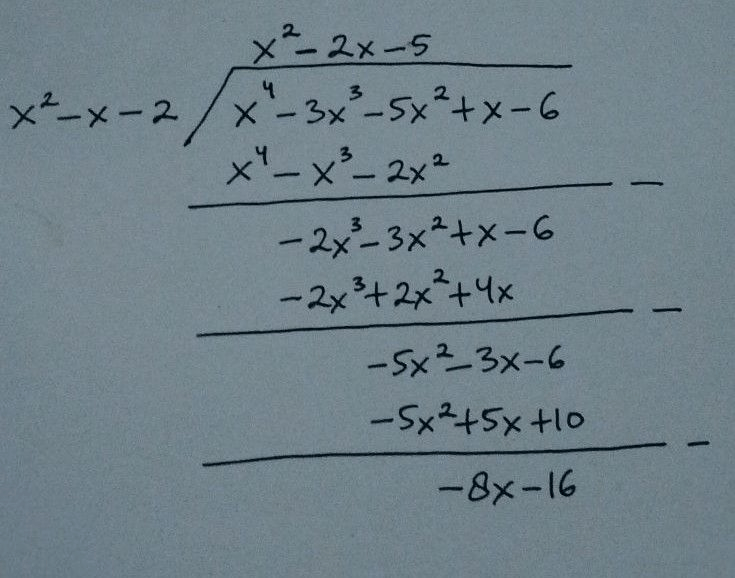 x² - 2x - 5
x² - x - 2 x⁴ - 3x³ - 5x² + x - 6
x⁴ - x³ - 2x² -
-2x³ - 3x² + x - 6
-2x³ + 2x² + 4x -
-5x² - 3x - 6
-5x² + 5x + 10 -
-8x - 16